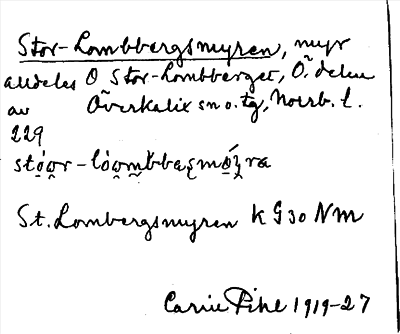 Stor-Lombbergsmyren, myr
alldeles O Stor-Lombberget, Ö. delen
av Överkalix sn o. tg, Norrb. l.
229
St. Lombergsmyren K G30 Nm
Carin Pihl 1919-27